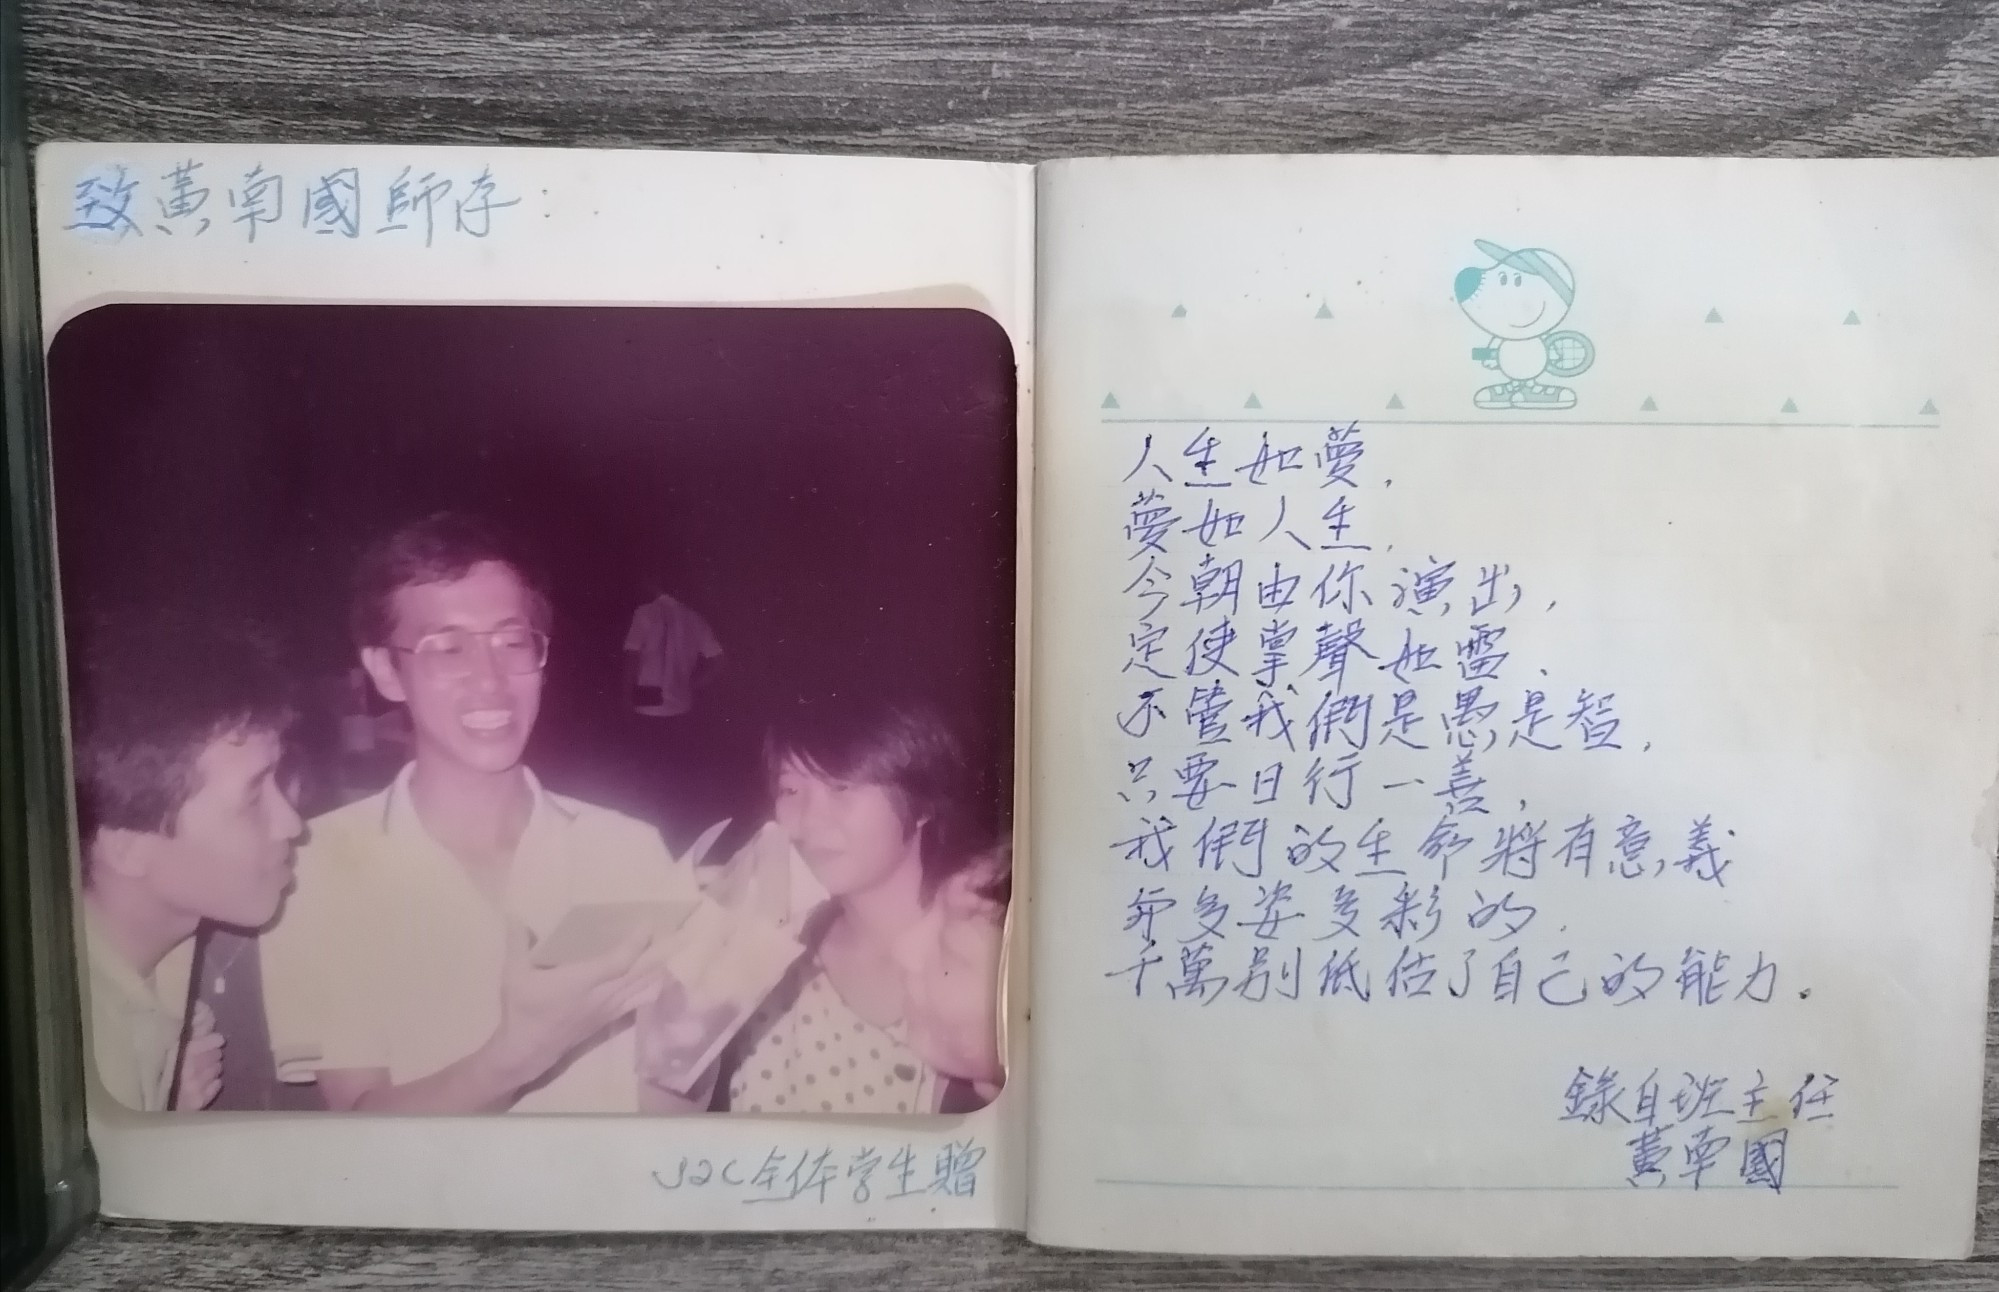 致黃南國師存：
J2C全体学生贈
人生如夢，
夢如人生，
今朝由你演出，
定使掌聲如雷，
不管我們是愚是智，
只要日行一善，
我們的生命將有意義
和多姿多彩的，
千萬別低估了自己的能力。
錄自班主任
黃南國